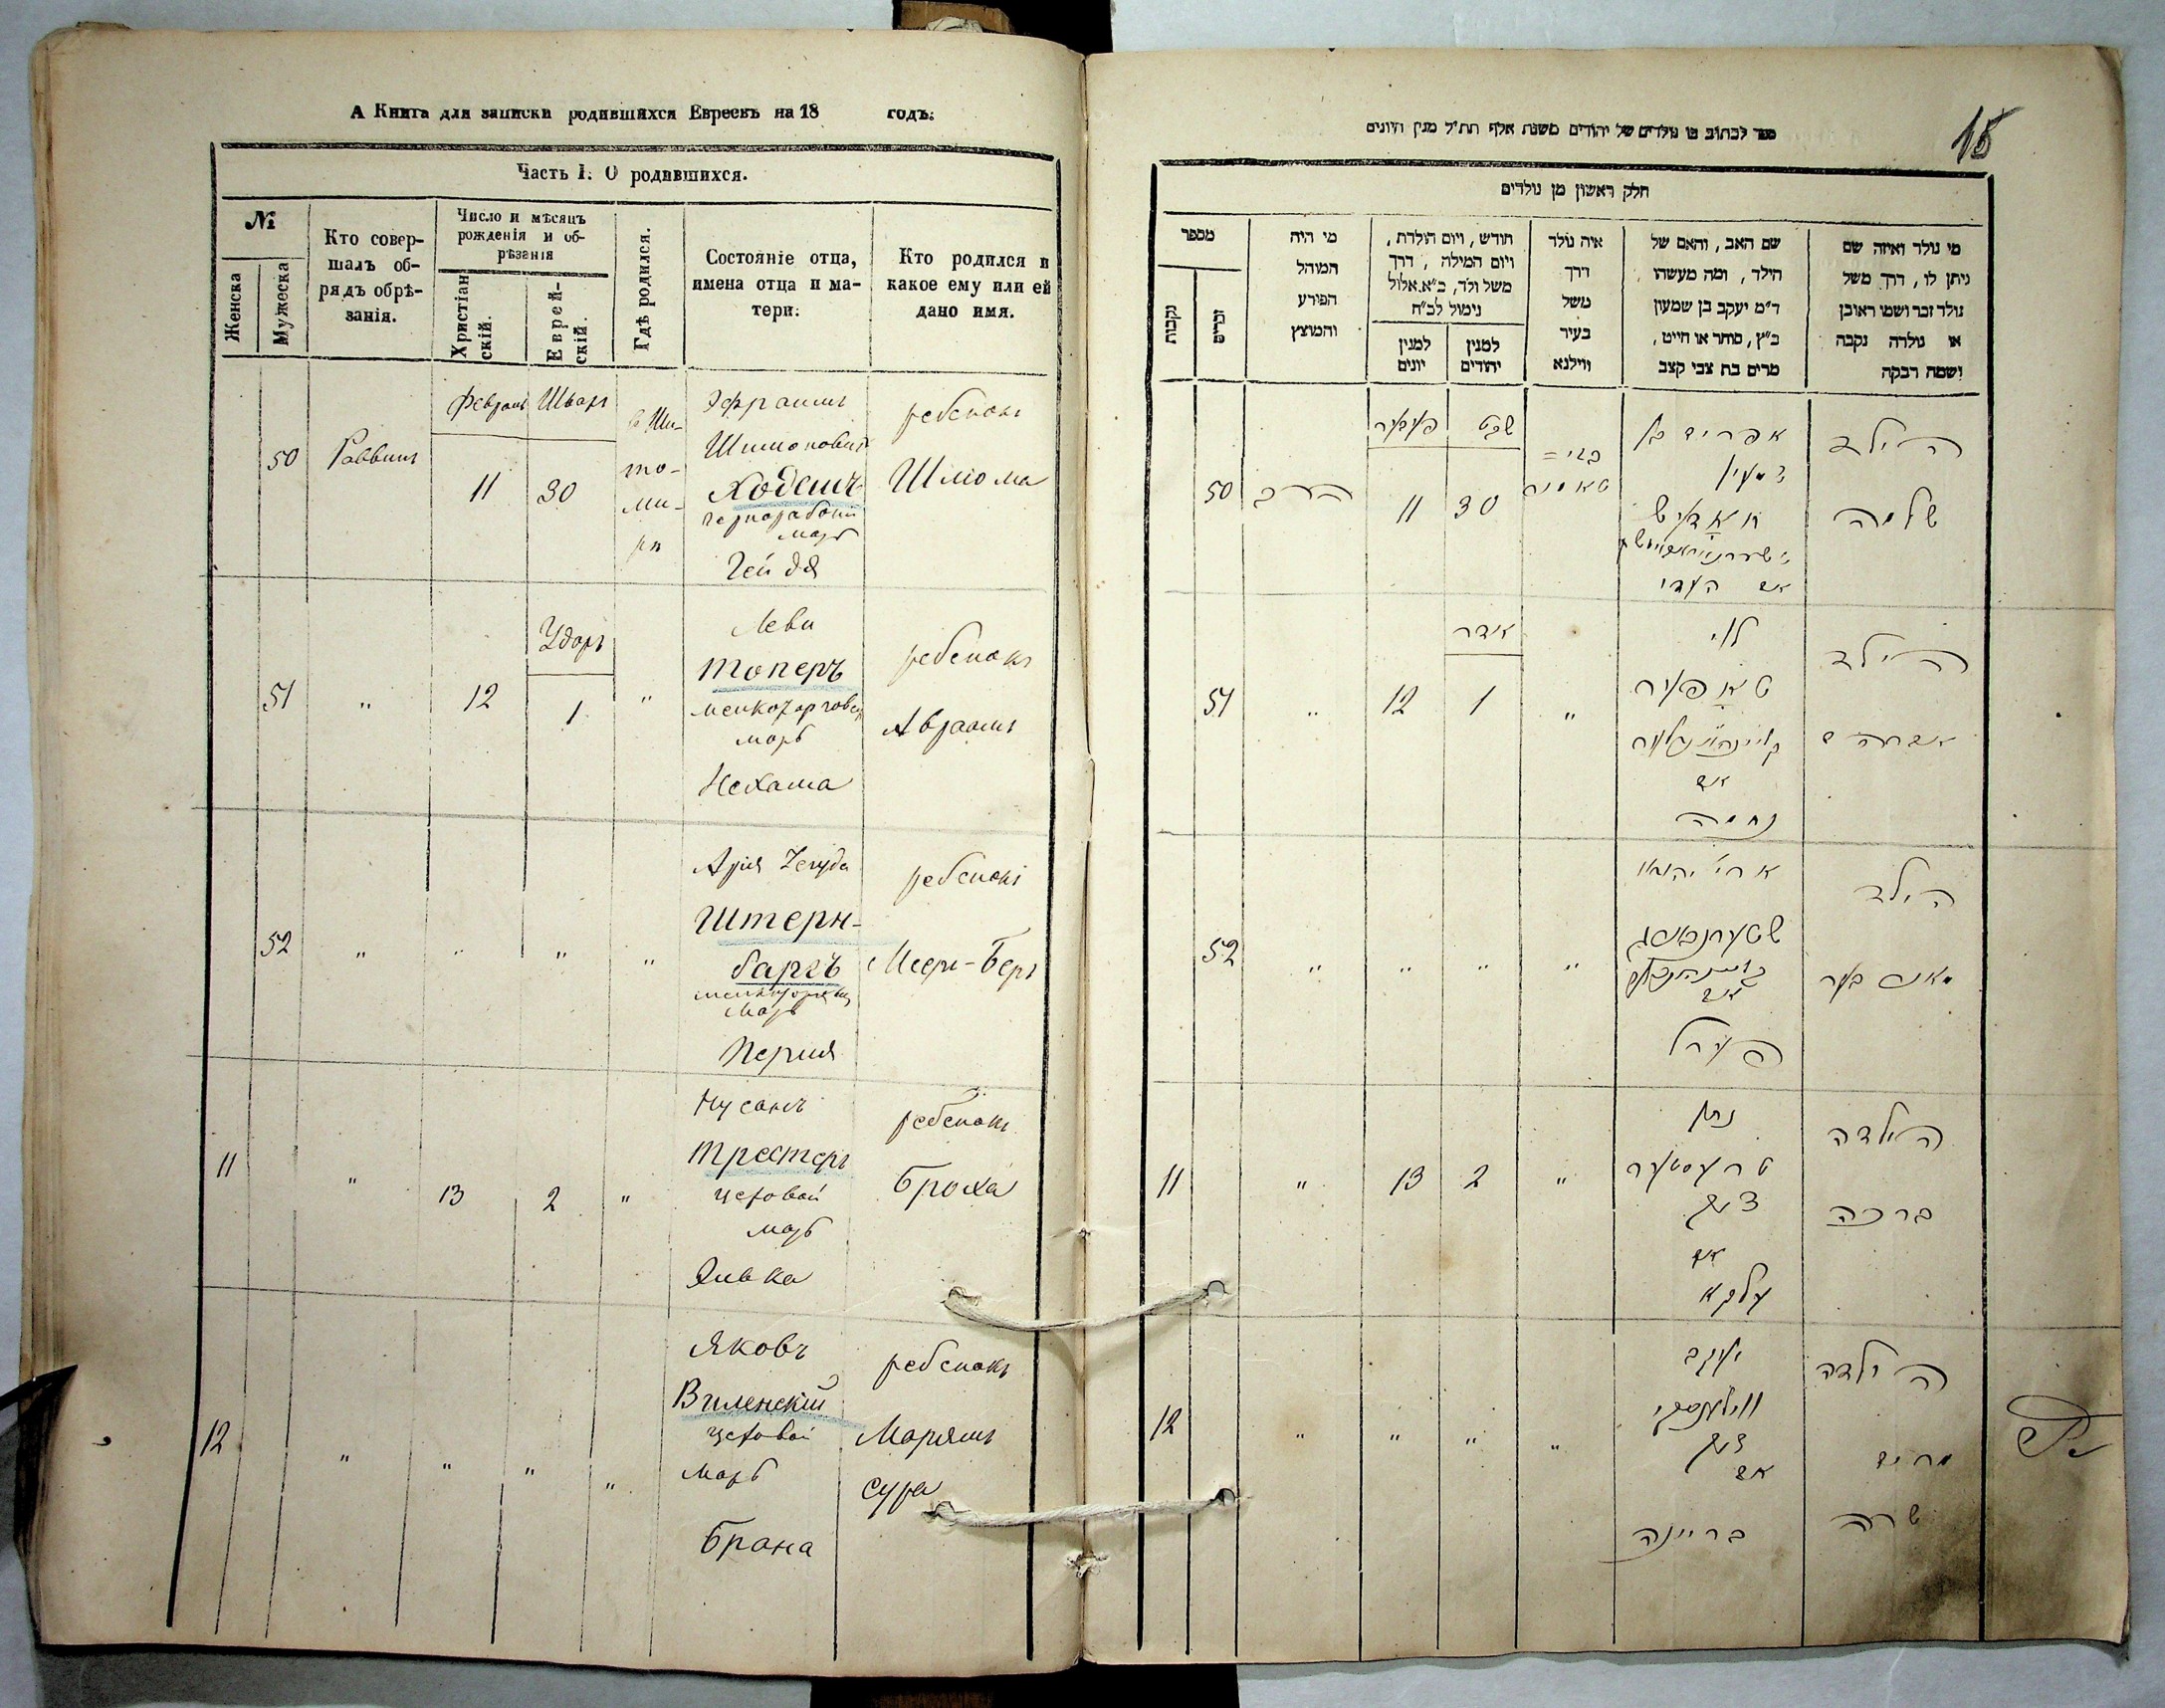 А Книга для записки родившихся Евреевъ на 18 годъ.
Часть I. О родившихся.
№
Женска
Мужеска
Кто совер-
шалъ об-
рядъ обрѣ-
занія.
Число и мѣсяцъ
рожденія и об-
рѣзанія
Христіан
скій.
Еврей-
скій.
Гдѣ родился.
Состояніе отца,
имена отца и ма-
тери.
Кто родился и
какое ему или ей
дано имя.
50
Раввинъ
Февраль
11
Шватъ
30
в Жи-
то-
ми-
рѣ
Эфраимъ
Шимоновичъ
Ходешъ
чернорабочій
мать
Гейдя
ребенокъ
Шлiома
51
"
12
Удоръ
1
"
Леви
Топеръ
мать
Нехама
ребенокъ
Авраамъ
52
"
"
"
"
Арія Іегуда
Штерн-
баргъ
мать
Перля
ребенокъ
Меер-Беръ
11
"
13
2
"
Нусонъ
Трестеръ
цеховой
мать
Элька
ребенокъ
Броха
12
"
"
"
"
Яковъ
Виленскій
цеховой
мать
Брана
ребенокъ
Маріямъ
Сура
15
ספר לכתוב בו נולדים של יהודים משנת אלף תת״ל מנין היונים
חלק ראשון מן נולדים
מספר
נקבות
זכרים
מי היה
המוהל
הפורע
והמוצץ
חודש, ויום הולדת,
ויום המילה, דרך
משל ולד, כ״א אלול
נימול לכ״ח
למנין
יונים
למנין
יהודים
איה נולד
דרך
משל
בעיר
ווילנא
שם האב, והאם של
הילד, ומה מעשהו
ד״מ יעקב בן שמעון
כ״ץ, סוחר או חייט,
מרים בת צבי קצב
מי נולד ואיזה שם
ניתן לו, דרך משל
נולד זכר ושמו ראובן
או נולדה נקבה
ושמה רבקה
50
הרב
11
שבט
30
אפרים בן
אם
הילד
שלמה
51
"
12
אדר
1
"
לוי
טאפיר
אם
נחמה
הילד
אברהם
52
"
"
"
"
ארי׳ יהודא
שטערנבארג
אם
פערל
הילד
מאיר בער
11
"
13
2
"
נתן
טרעסטער
אם
עלקא
הילדה
ברכה
12
"
"
"
"
יעקב
ווילענסקי
אם
בריינה
הילדה
מרים
שרה